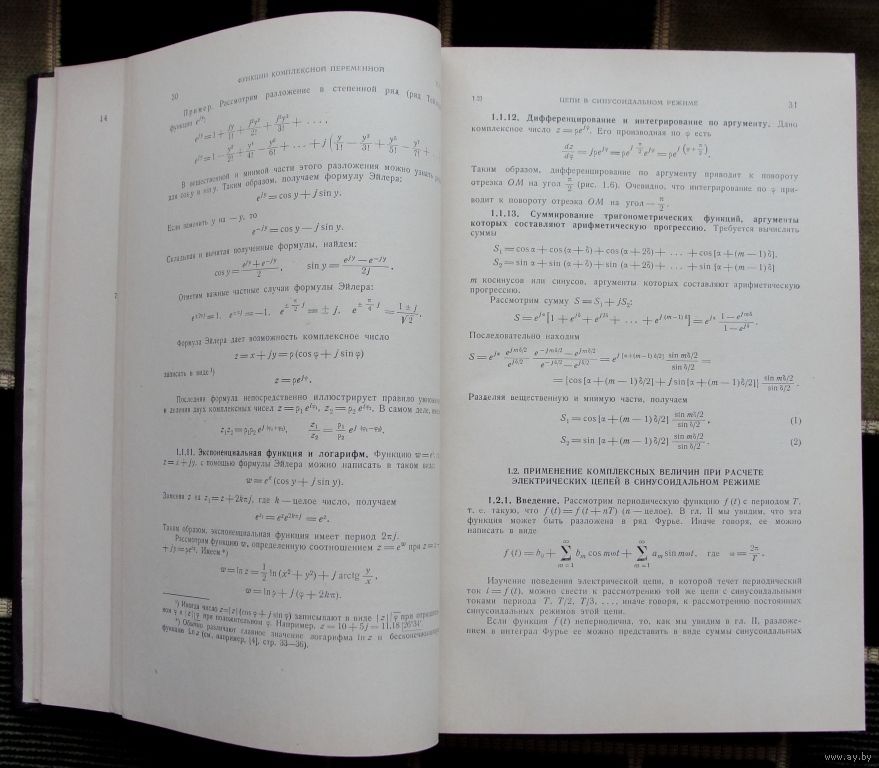 14
7
30
ФУНКЦИИ КОМПЛЕКСНОЙ ПЕРЕМЕННОЙ
Пример. Рассмотрим разложение в степенной ряд (ряд
функцию e^{jy}:
e^{jy} = 1 + jy/1! + j²y²/2! + j³y³/3! + . . . ,
e^{jy} = 1 − y²/2! + y⁴/4! − y⁶/6! + . . . + j (y/1! − y³/3! + y⁵/5! − y⁷/7! +
В вещественной и мнимой части этого разложения можно узнать
для cos y и sin y. Таким образом, получаем формулу Эйлера:
e^{jy} = cos y + j sin y.
Если заменить y на −y, то
e^{−jy} = cos y − j sin y.
Складывая и вычитая полученные формулы, найдем:
cos y = (e^{jy} + e^{−jy})/2 , sin y = (e^{jy} − e^{−jy})/2j .
Отметим важные частные случаи формулы Эйлера:
e^{±2πj} = 1, e^{±πj} = −1, e^{±(π/2)j} = ± j, e^{±(π/4)j} = (1 ± j)/√2 .
Формула Эйлера дает возможность комплексное число
z = x + jy = ρ (cos φ + j sin φ)
записать в виде ¹)
z = ρe^{jφ}.
Последняя формула непосредственно иллюстрирует правило
и деления двух комплексных чисел z = ρ₁e^{jφ₁}, z₂ = ρ₂e^{jφ₂}. В самом деле,
z₁z₂ = ρ₁ρ₂e^{j(φ₁+φ₂)}, z₁/z₂ = ρ₁/ρ₂ e^{j(φ₁−φ₂)}.
1.1.11. Экспоненциальная функция и логарифм. Функцию w = e^z,
z = x + jy, с помощью формулы Эйлера можно написать в таком виде:
w = e^x (cos y + j sin y).
Заменяя z на z₁ = z + 2kπj, где k — целое число, получаем
e^{z₁} = e^z e^{2kπj} = e^z.
Таким образом, экспоненциальная функция имеет период 2πj.
Рассмотрим функцию w, определенную соотношением z = e^w при z =
+ jy = ρe^{jφ}. Имеем ²)
w = ln z = 1/2 ln (x² + y²) + j arctg y/x ,
w = ln ρ + j (φ + 2kπ).
¹) Иногда число z = |z| (cos φ + j sin φ) записывают в виде |z| φ при
ном φ и |z| φ при положительном φ. Например, z = 10 + 5j = 11,18 |26°34′.
²) Обычно различают главное значение логарифма ln z и
функцию Ln z (см., например, [4], стр. 33—36).
1.2]
ЦЕПИ В СИНУСОИДАЛЬНОМ РЕЖИМЕ
31
1.1.12. Дифференцирование и интегрирование по аргументу. Дано
комплексное число z = ρe^{jφ}. Его производная по φ есть
dz/dφ = jρe^{jφ} = ρe^{jπ/2}e^{jφ} = ρe^{j(φ + π/2)}.
Таким образом, дифференцирование по аргументу приводит к повороту
отрезка OM на угол π/2 (рис. 1.6). Очевидно, что интегрирование по φ при-
водит к повороту отрезка OM на угол − π/2 .
1.1.13. Суммирование тригонометрических функций, аргументы
которых составляют арифметическую прогрессию. Требуется вычислить
суммы
S₁ = cos α + cos (α + δ) + cos (α + 2δ) + . . . + cos [α + (m − 1) δ],
S₂ = sin α + sin (α + δ) + sin (α + 2δ) + . . . + sin [α + (m − 1) δ]
m косинусов или синусов, аргументы которых составляют арифметическую
прогрессию.
Рассмотрим сумму S = S₁ + jS₂:
S = e^{jα} [1 + e^{jδ} + e^{j2δ} + . . . + e^{j(m−1)δ}] = e^{jα} (1 − e^{jmδ})/(1 − e^{jδ}) .
Последовательно находим
S = e^{jα} e^{jmδ/2}/e^{jδ/2} (e^{−jmδ/2} − e^{jmδ/2})/(e^{−jδ/2} − e^{jδ/2}) = e^{j[α+(m−1)δ/2]} (sin mδ/2)/(sin δ/2) =
= {cos [α + (m − 1) δ/2] + j sin [α + (m − 1) δ/2]} (sin mδ/2)/(sin δ/2) .
Разделяя вещественную и мнимую части, получаем
S₁ = cos [α + (m − 1) δ/2] (sin mδ/2)/(sin δ/2) , (1)
S₂ = sin [α + (m − 1) δ/2] (sin mδ/2)/(sin δ/2) . (2)
1.2. ПРИМЕНЕНИЕ КОМПЛЕКСНЫХ ВЕЛИЧИН ПРИ РАСЧЕТЕ
ЭЛЕКТРИЧЕСКИХ ЦЕПЕЙ В СИНУСОИДАЛЬНОМ РЕЖИМЕ
1.2.1. Введение. Рассмотрим периодическую функцию f (t) с периодом T,
т. е. такую, что f (t) = f (t + nT) (n — целое). В гл. II мы увидим, что эта
функция может быть разложена в ряд Фурье. Иначе говоря, ее можно
написать в виде
f (t) = b₀ + ∑_{m=1}^{∞} b_m cos mωt + ∑_{m=1}^{∞} a_m sin mωt, где ω = 2π/T .
Изучение поведения электрической цепи, в которой течет периодический
ток i = f (t), можно свести к рассмотрению той же цепи с синусоидальными
токами периода T, T/2, T/3, . . . , иначе говоря, к рассмотрению постоянных
синусоидальных режимов этой цепи.
Если функция f (t) непериодична, то, как мы увидим в гл. II, разложе-
нием в интеграл Фурье ее можно представить в виде суммы синусоидальных
www.ay.by